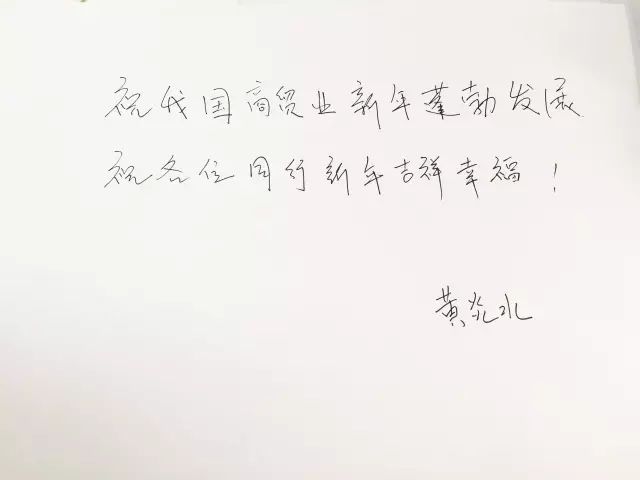 祝我国商贸业新年蓬勃发展
祝各位同行新年吉祥幸福！
黄炎水